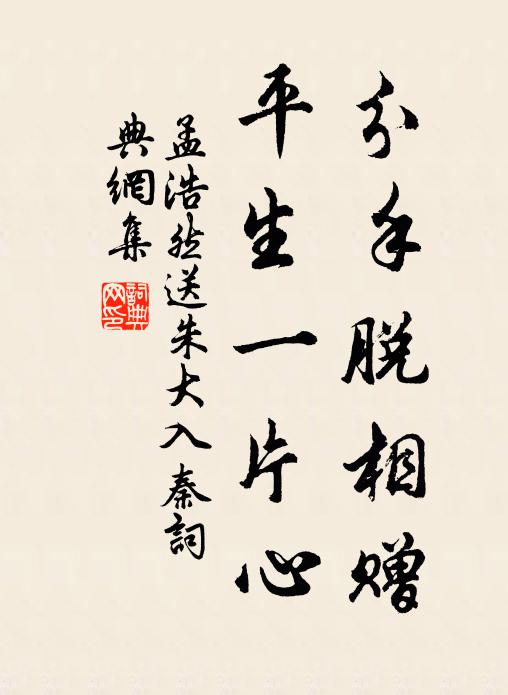 分手脱相赠
平生一片心
孟浩然送朱大入秦詞
典網集
詞典网印